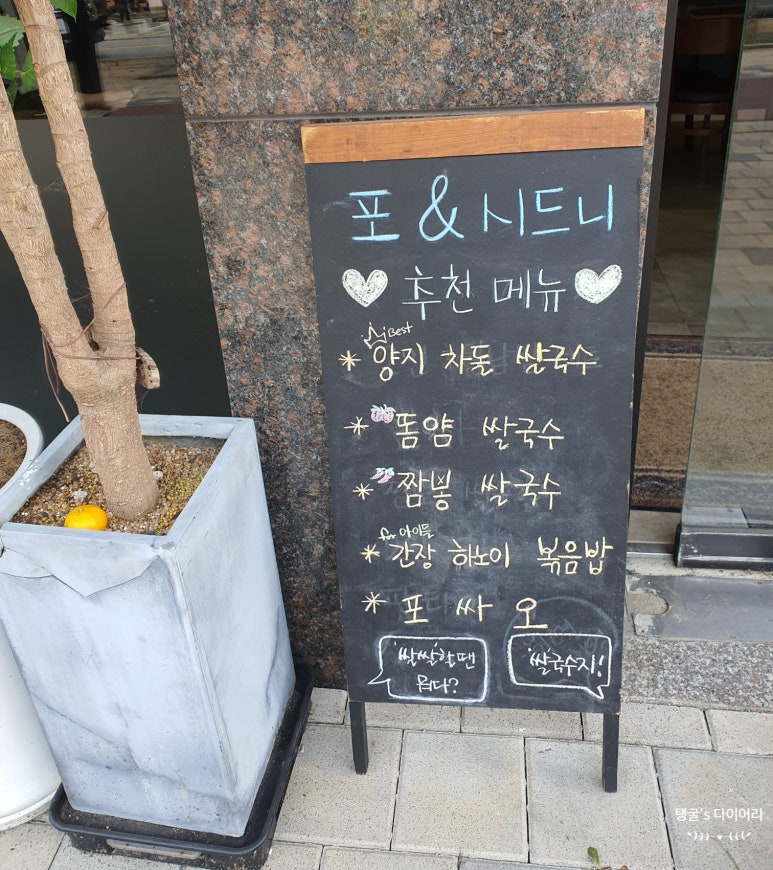 포 & 시드니
추천 메뉴
Best
* 양지 차돌 쌀국수
* 똠얌 쌀국수
* 짬뽕 쌀국수
for 아이들
* 간장 하노이 볶음밥
* 포 싸 오
'쌀쌀'할땐
뭐다?
'쌀'국수지!
탱굴's 다이어리